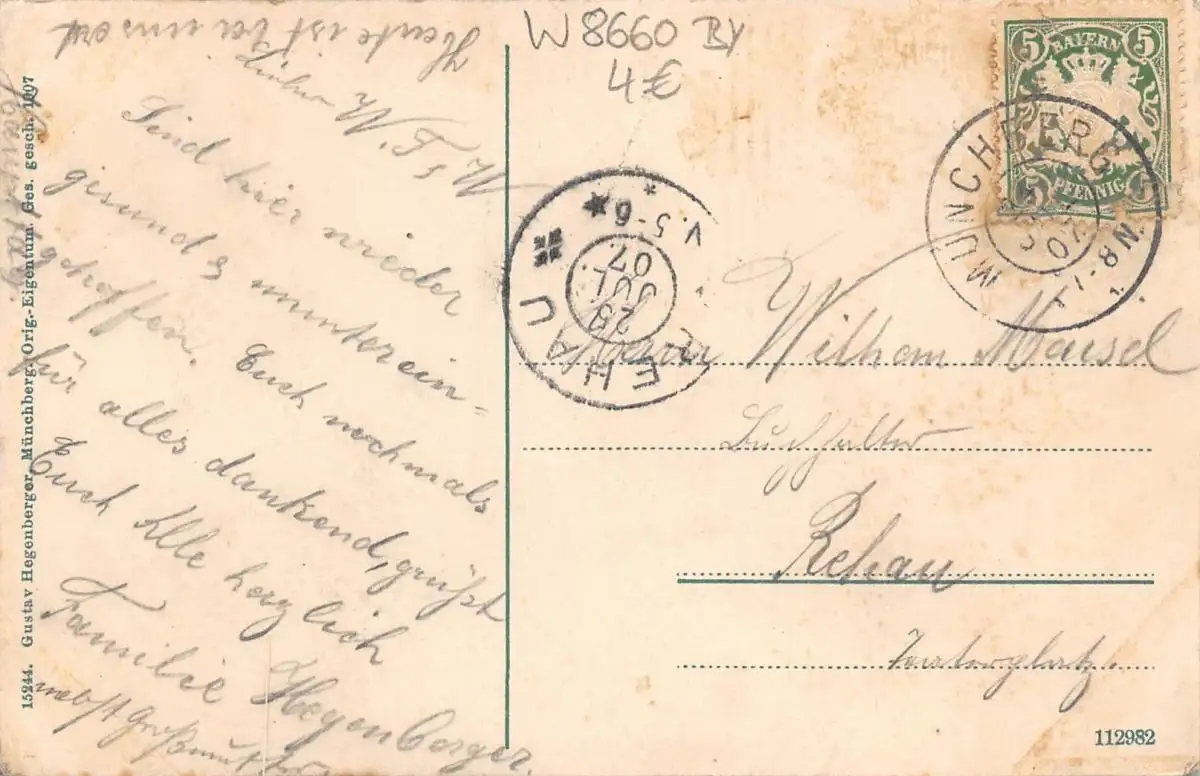 W 8660 BY
4€
5 BAYERN 5
5 PFENNIG 5
MÜNCHBERG
07
7-8N.
REHAU
23
JUL
07
V. 5-6
Heute ist bei uns
Lieber W. &
Sind hier wieder
gesund & munter ein-
getroffen. Euch nochmals
für alles dankend, grüßt
Euch Alle herzlich
Familie Hegenberger.
nebst Großmutter
Herrn Wilhelm Maisel
Buchhalter
Rehau
15244. Gustav Hegenberger, Münchberg. Orig.-Eigentum. Ges. gesch. 1907
112982